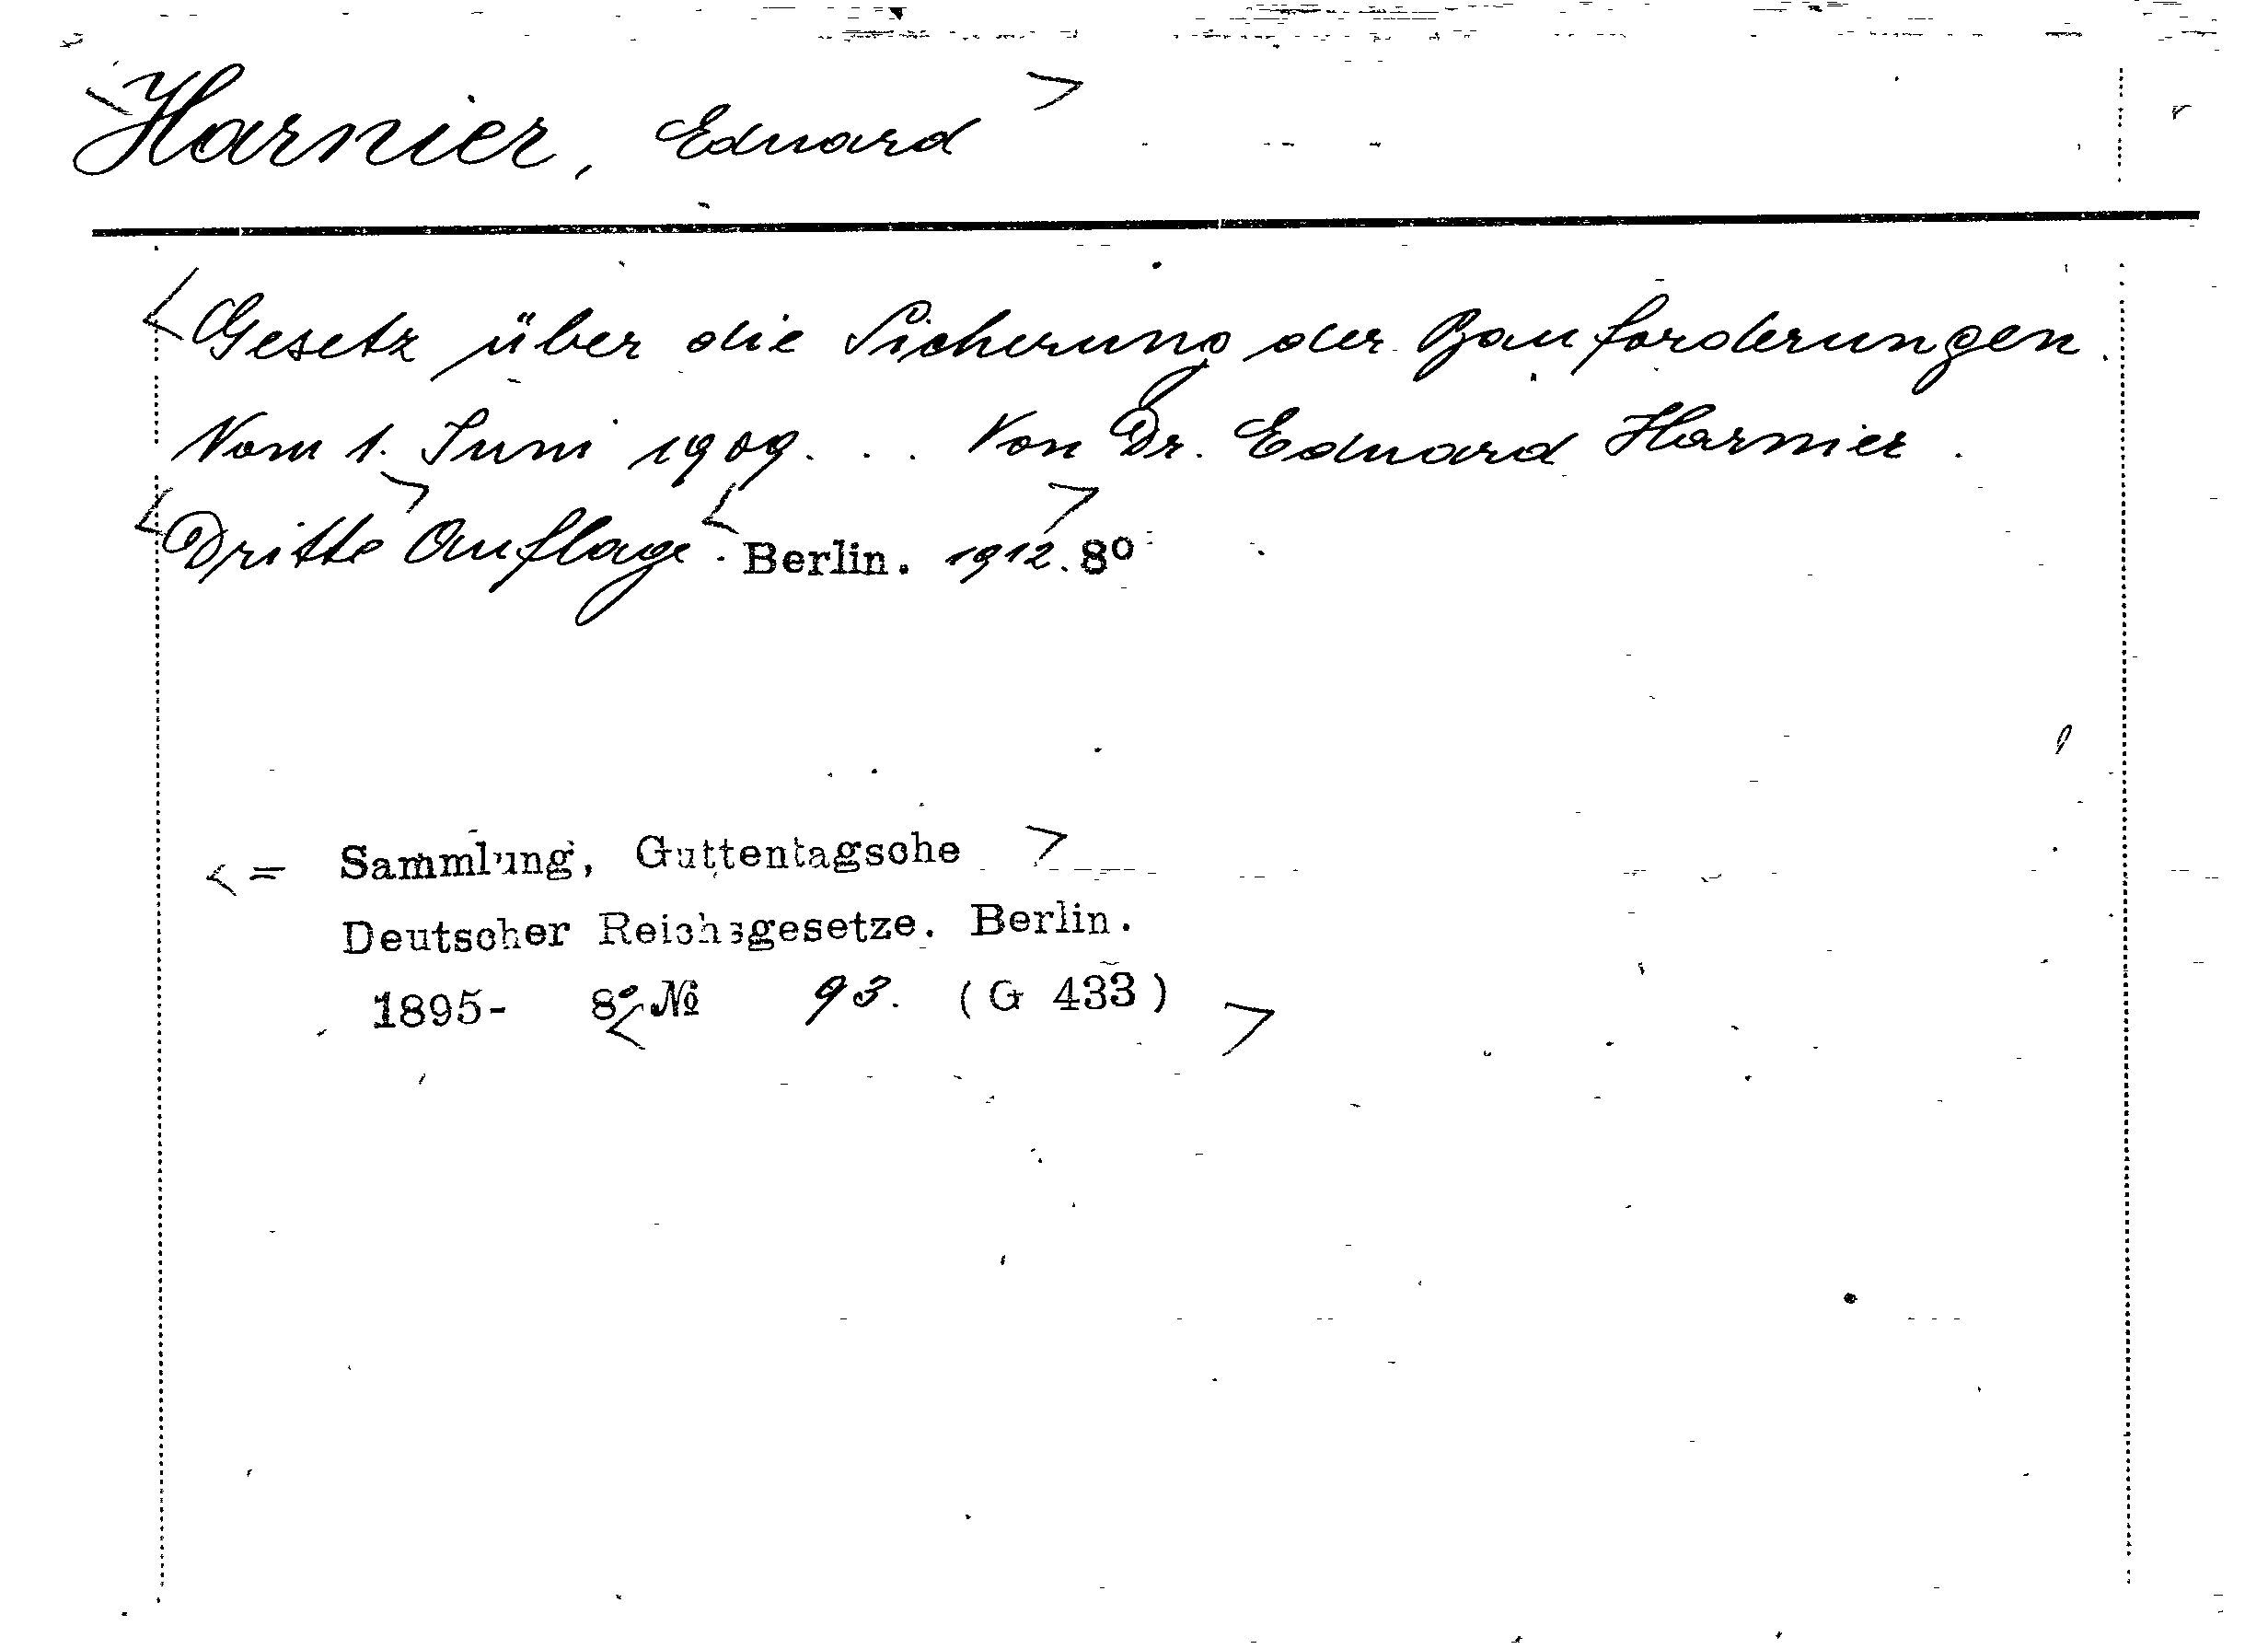 <Harnier, Eduard>
<Gesetz über die Sicherung der Bauforderungen.
Vom 1. Juni 1909. . . Von Dr. Eduard Harnier.
<Dritte> Auflage. <Berlin. 1912.> 8°
<= Sammlung, Guttentagsche>
Deutscher Reichsgesetze. Berlin.
1895- 8° <№ 93. (G 433)>